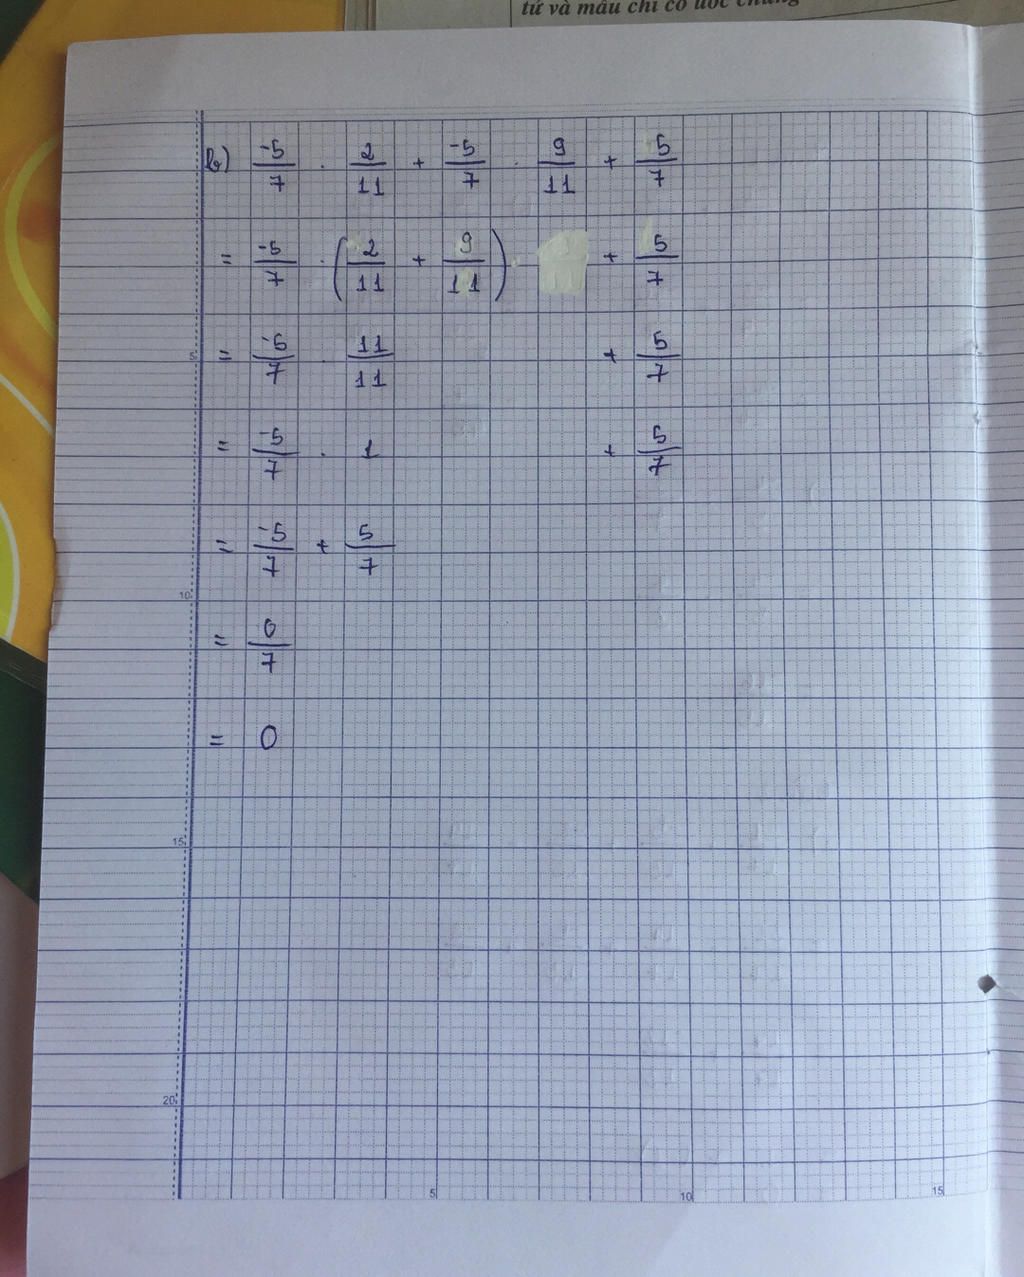 tử và mẫu chỉ có ước chung
b) -5/7 . 2/11 + -5/7 . 9/11 + 5/7
= -5/7 . (2/11 + 9/11) + 5/7
= -5/7 . 11/11 + 5/7
5
= -5/7 . 1 + 5/7
= -5/7 + 5/7
10
= 0/7
= 0
15
20
5 10 15